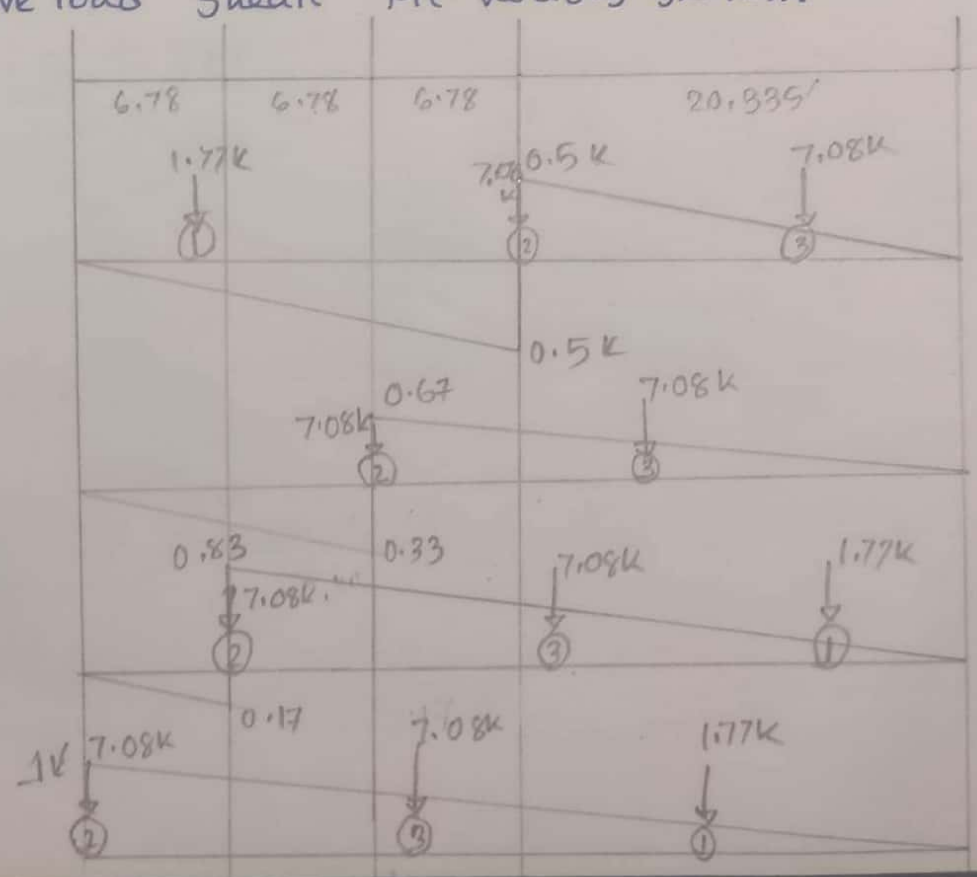 ve load shear
6.78 6.78 6.78 20.335'
1.77K 7.08 K 0.5 K 7.08K
1 2 3
0.5 K
0.67 7.08K
7.08K
2 3
0.83 0.33 7.08K 1.77K
7.08K
2 3 1
0.17
1K 7.08K 7.08K 1.77K
2 3 1